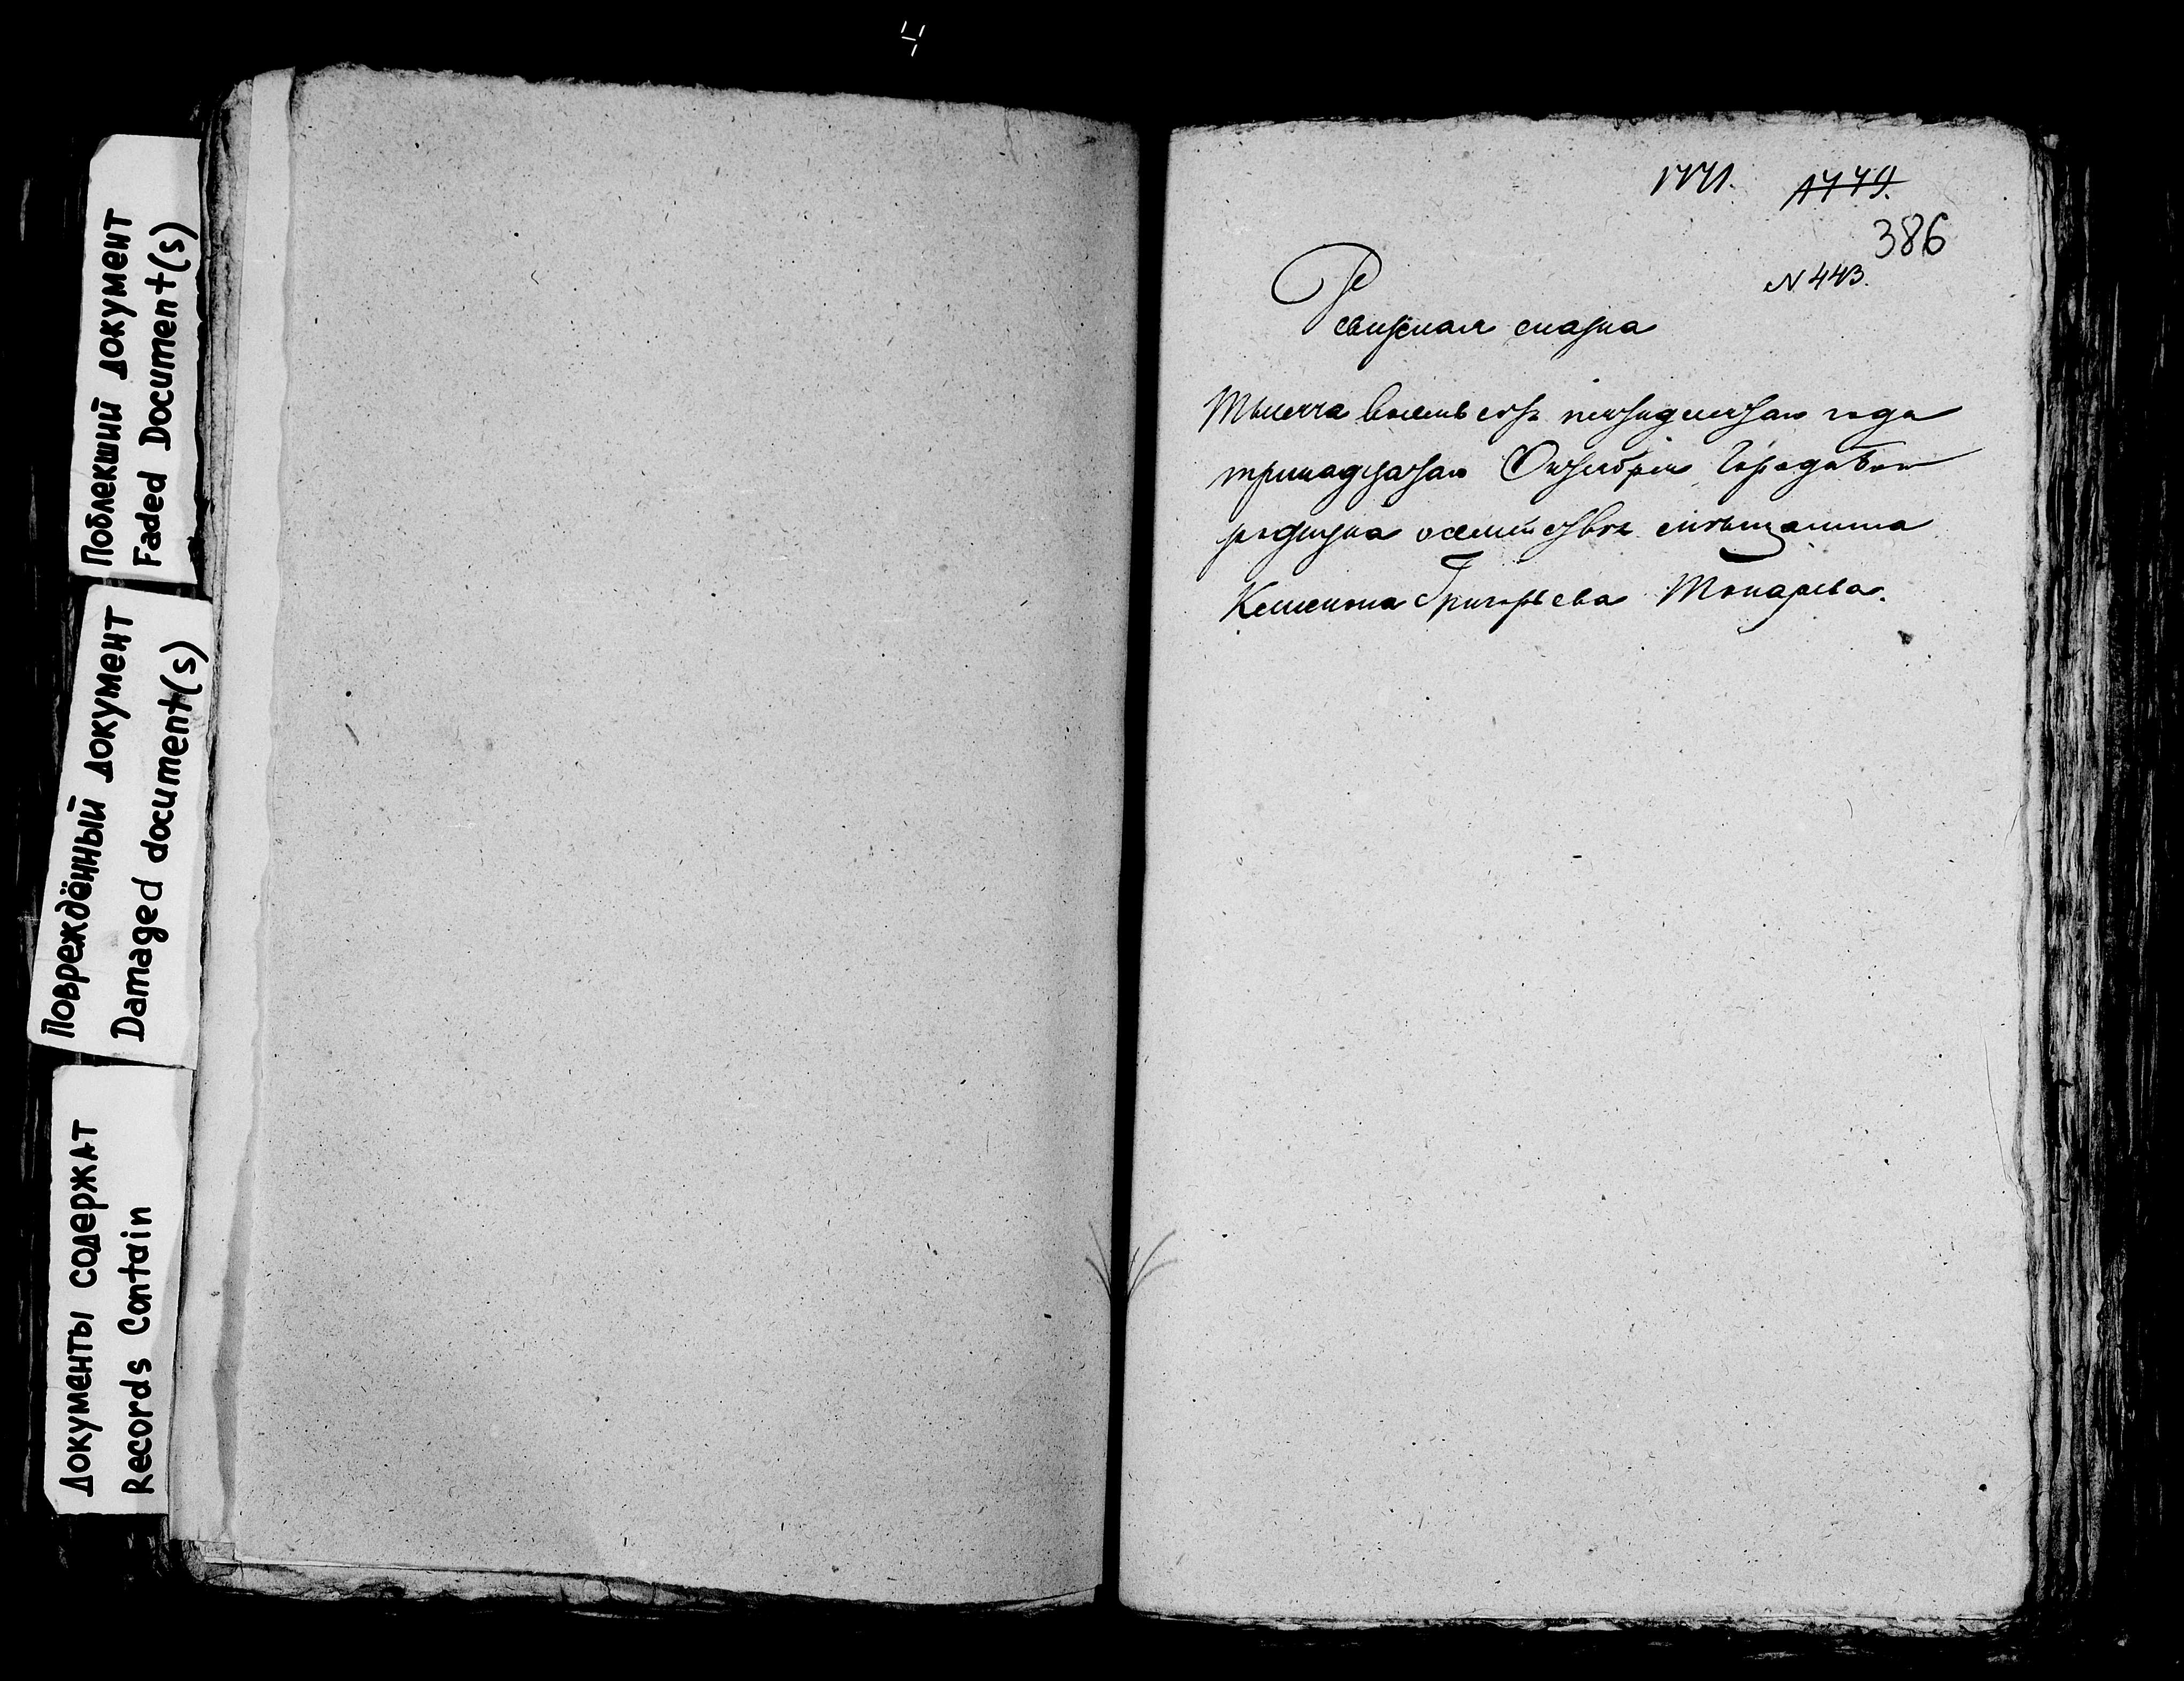 4
Поблекший документ
Faded Document(s)
Повреждённый документ
Damaged document(s)
Документы содержат
Records Contain
1771. 1779.
386
N 443.
Ревизская сказка
Тысяча восемь сотъ пятидесятаго года
октября
о семействе мѣщанина
Григорьева Токарева.